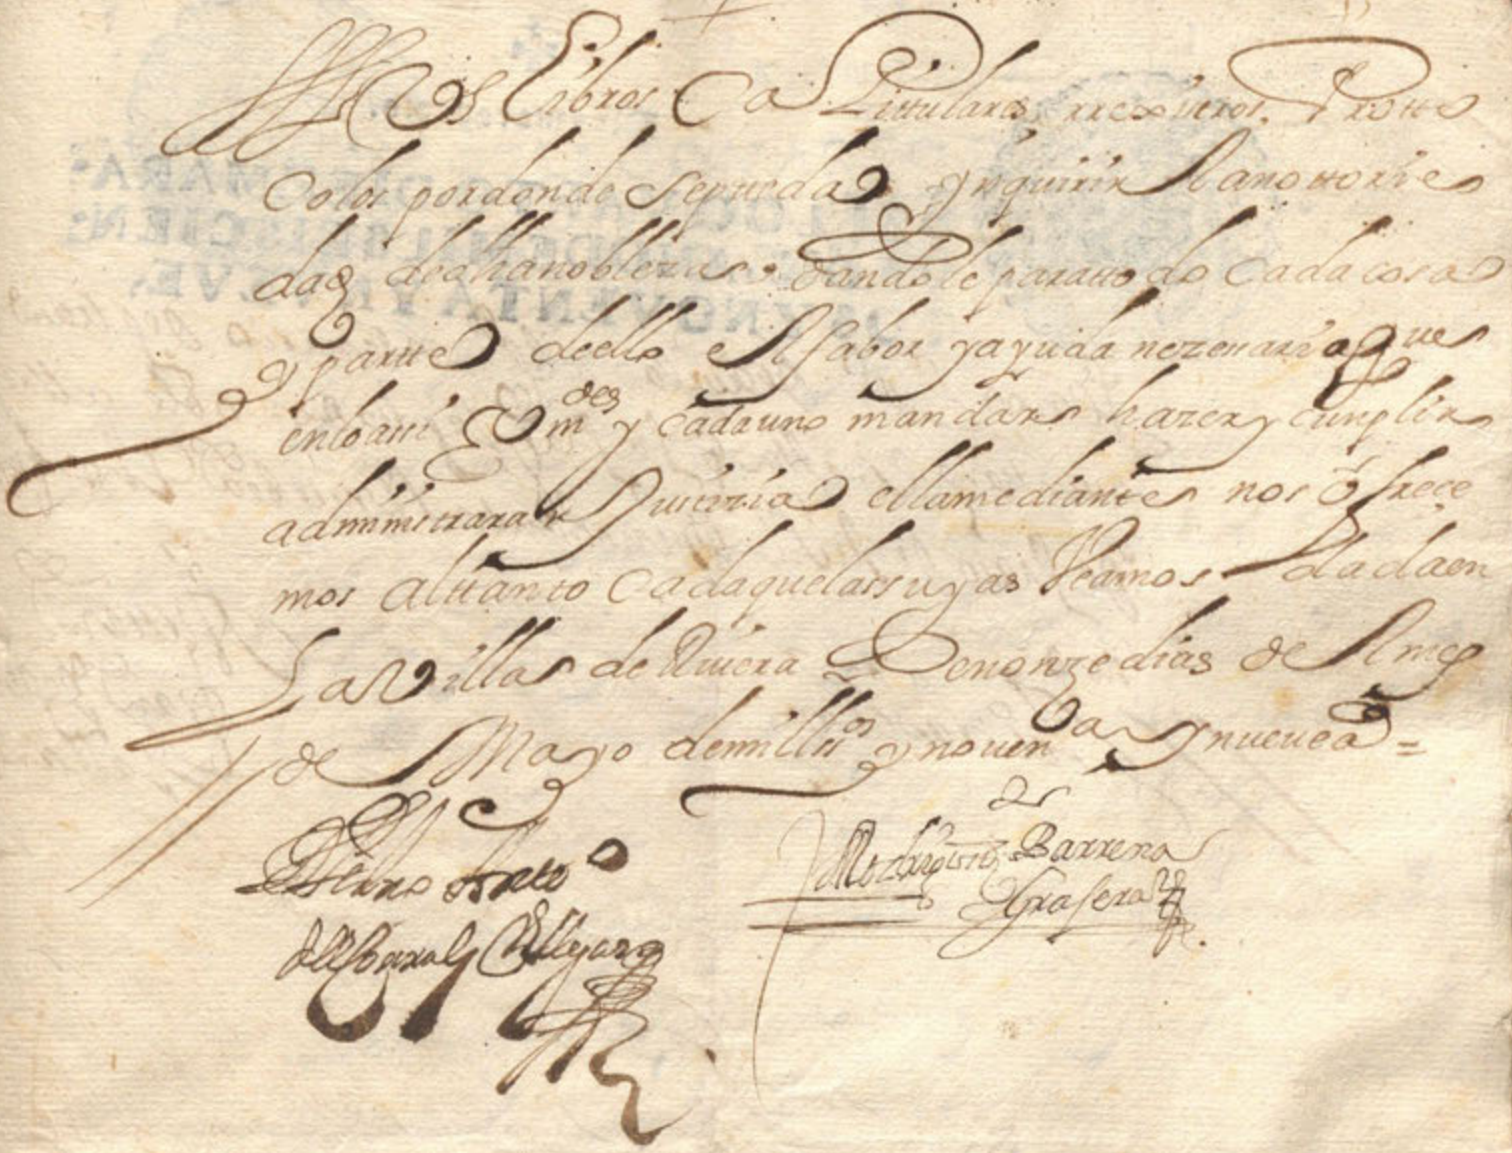 los Libros Capittulares rrexistros. Protto
colos por donde se pueda ynquirir la nottorie
dad de dha nobleza. dandole para ttodo cada cosa
y partte dello el fabor y ayuda nezesaria que
en lo assi Vmdes y cada uno mandar hazer y cunplir
administraran Justizia ella mediante nos ofrece
mos al ttanto cada que las suyas Veamos dada en
La Villa de en onze dias del mes
de Mayo de mill y noventa y nuebe a =
Barrena
Grasera